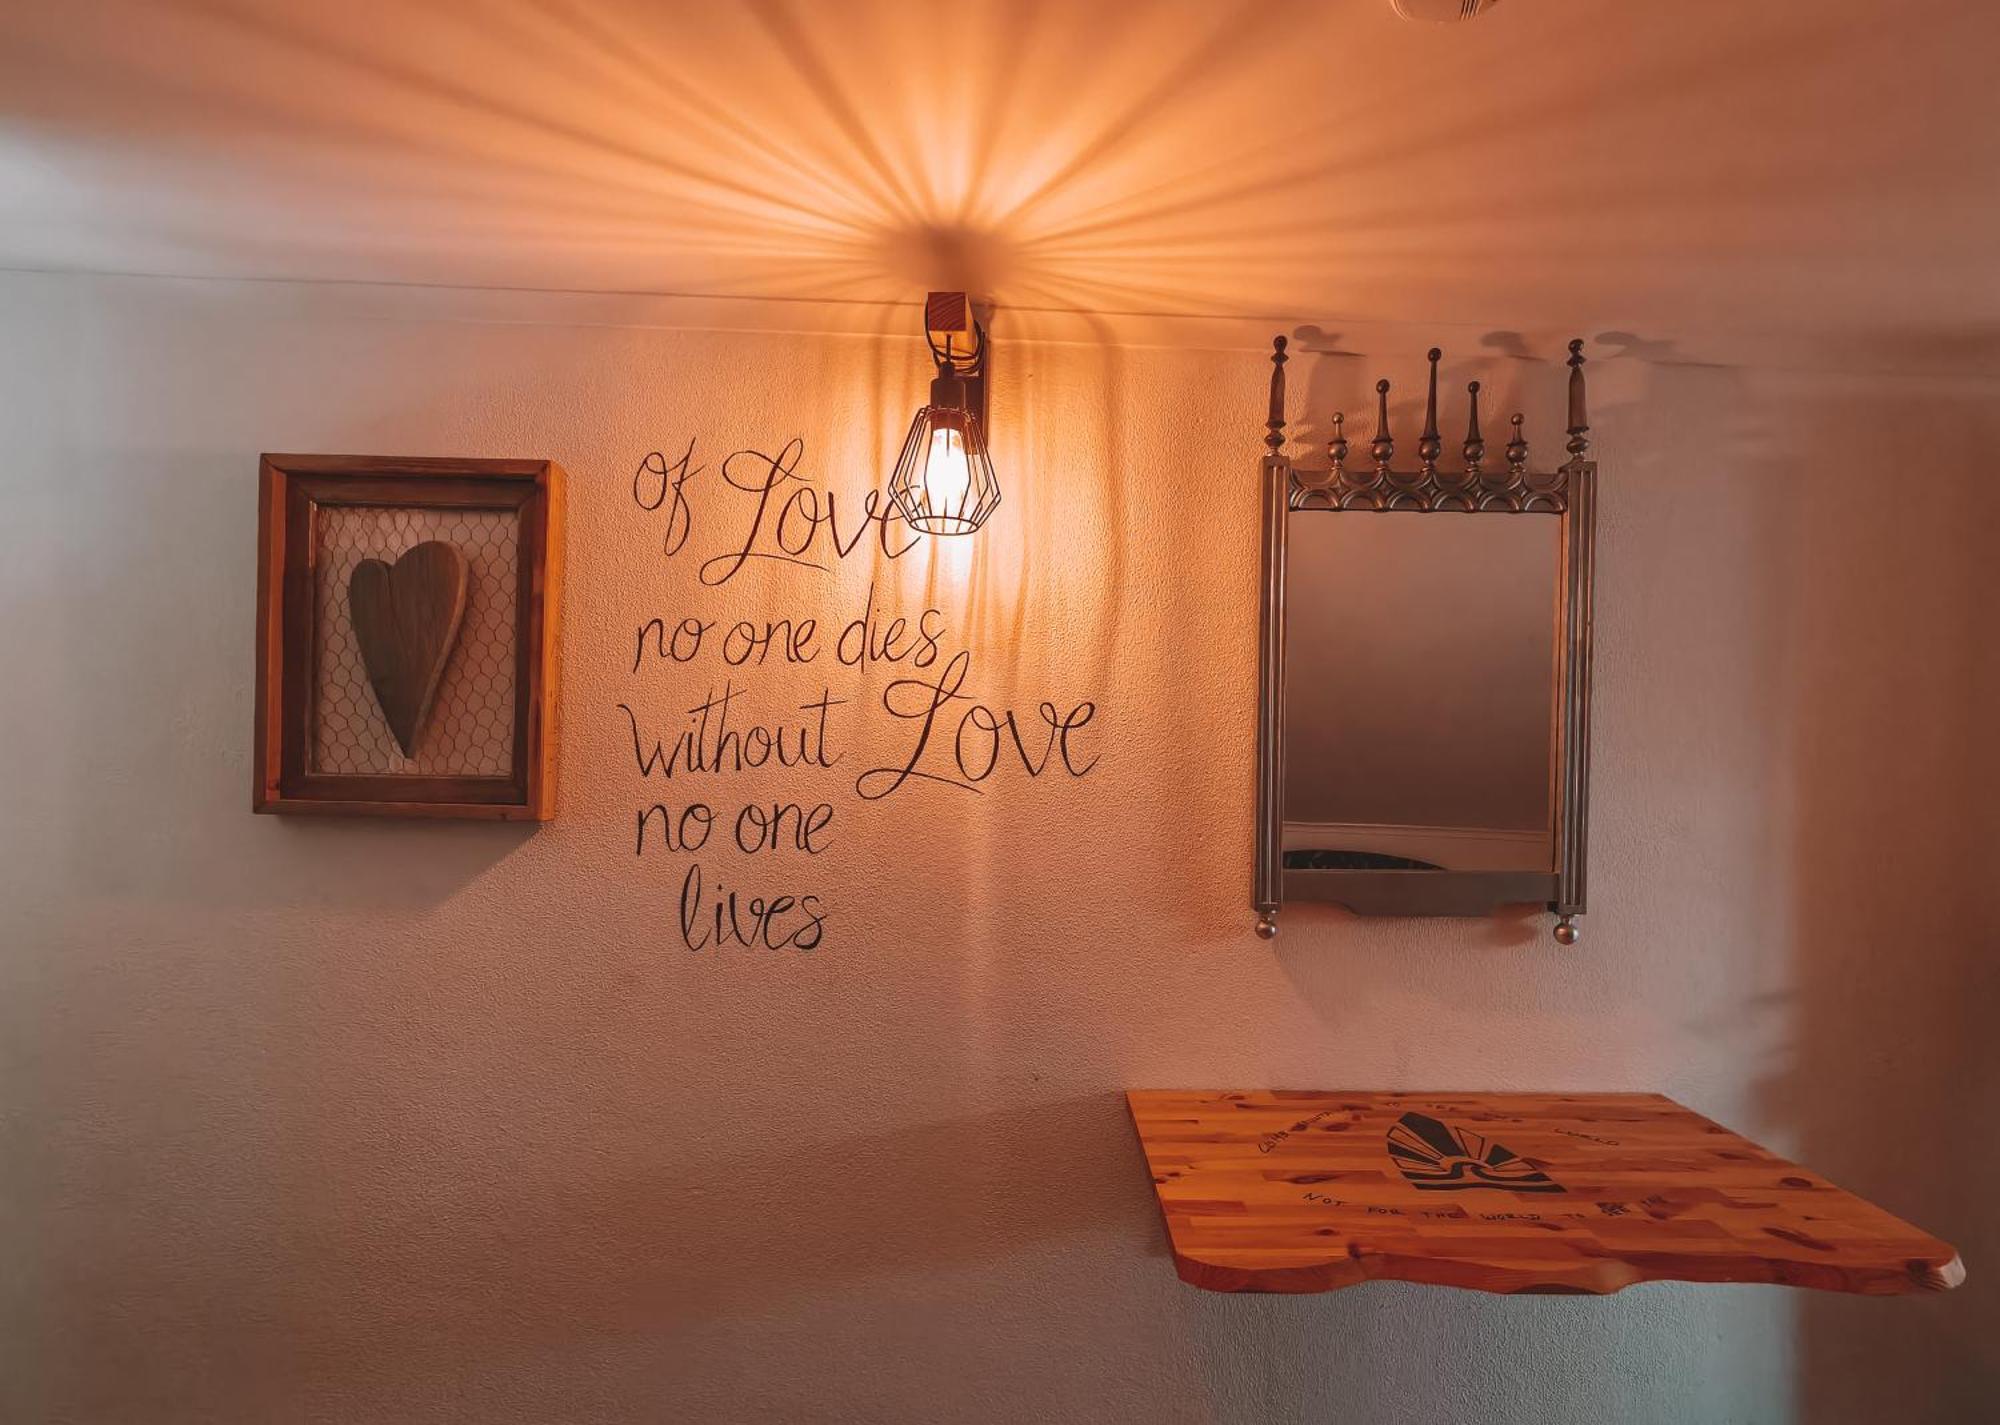 of Love
no one dies
without Love
no one
lives
TO
WORLD
NOT FOR THE WORLD TO